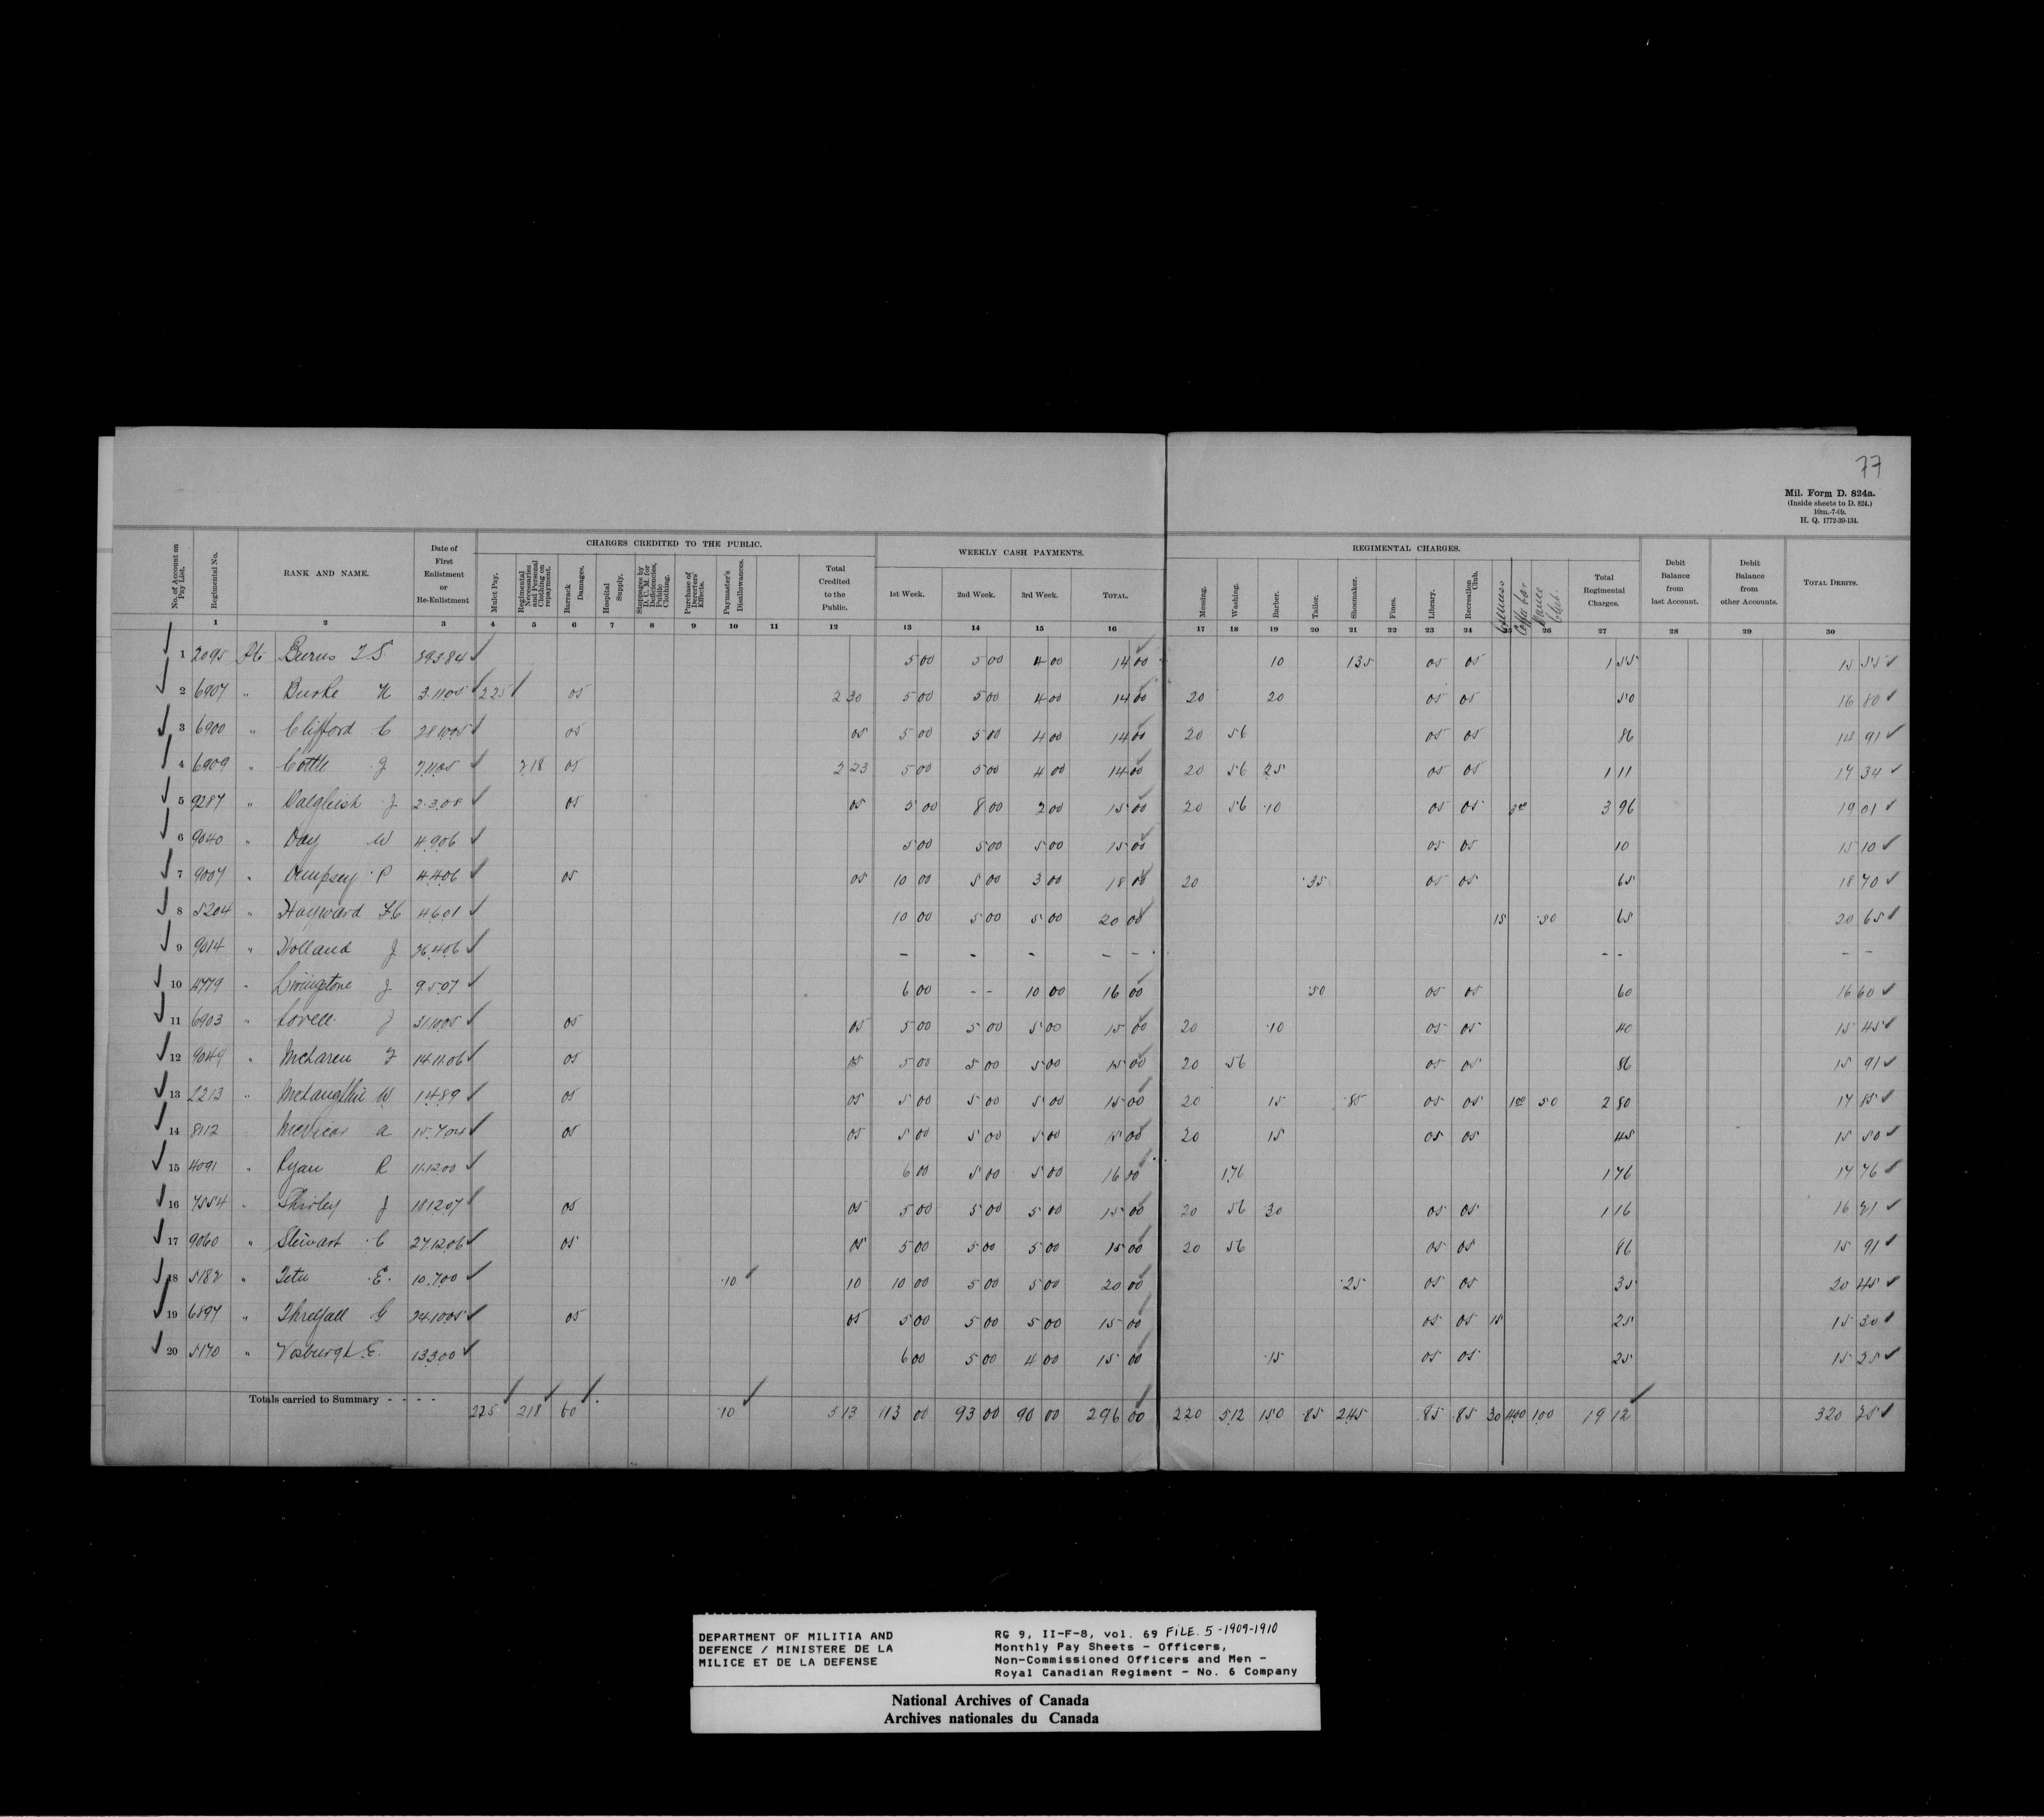 77
Mil. Form D. 824a.
(Inside sheets to D. 824.)
10m.-7-09.
H. Q. 1772-39-134.
CHARGES CREDITED TO THE PUBLIC. WEEKLY CASH PAYMENTS. REGIMENTAL CHARGES.
No. of Account on Pay List. Regimental No. RANK AND NAME. Date of First Enlistment or Re-Enlistment Mulct Pay. Regimental Necessaries and Personal Clothing on repayment. Barrack Damages. Hospital Supply. Stoppages by D. U. M. for Deficiencies, Public Clothing. Purchase of Dererters' Effects. Paymaster's Disallowances. Total Credited to the Public. 1st Week. 2nd Week. 3rd Week. TOTAL. Messing. Washing. Barber. Tailor. Shoemaker. Fines. Library. Recreation Club. Coffee bar Dance Club. Total Regimental Charges. Debit Balance from last Account. Debit Balance from other Accounts. TOTAL DEBITS.
1 2 3 4 5 6 7 8 9 10 11 12 13 14 15 16 17 18 19 20 21 22 23 24 25 26 27 28 29 30
1 2095 Pte Burns 29.3.84 5 00 5 00 4 00 14 00 10 1 35 05 05 1 55 15 55
2 6907 " Burke 3.11.05 2 25 05 2 30 5 00 5 00 4 00 14 00 20 20 05 05 50 16 80
3 6900 " Clifford C 28.10.05 05 05 5 00 5 00 4 00 14 00 20 56 05 05 86 14 91
4 6909 " Cottle J 7.11.05 2 18 05 2 23 5 00 5 00 4 00 14 00 20 56 25 05 05 1 11 17 34
5 9287 " Dalgleish J 2.3.08 05 05 5 00 8 00 2 00 15 00 20 56 10 05 05 3 00 3 96 19 01
6 9040 " Day W 4.9.06 5 00 5 00 5 00 15 00 05 05 10 15 10
7 9007 " Dempsey P 4.4.06 05 05 10 00 5 00 3 00 18 00 20 35 05 05 65 18 70
8 5204 " Hayward F C 4.6.01 10 00 5 00 5 00 20 00 15 50 65 20 65
9 9014 " Holland J 26.4.06 - - - - - - - - -
10 4779 " Livingstone J 9.5.07 6 00 - - 10 00 16 00 50 05 05 60 16 60
11 6903 " Lovell J 31.10.05 05 05 5 00 5 00 5 00 15 00 20 10 05 05 40 15 45
12 9049 " McLaren F 14.11.06 05 05 5 00 5 00 5 00 15 00 20 56 05 05 86 15 91
13 2213 " McLaughlin W 1.4.89 05 05 5 00 5 00 5 00 15 00 20 15 85 05 05 1 00 50 2 80 17 85
14 8112 McVicar A 15.7.04 05 05 5 00 5 00 5 00 15 00 20 15 05 05 45 15 50
15 4091 " Ryan R 11.12.00 6 00 5 00 5 00 16 00 1 76 1 76 17 76
16 7554 " Shirley J 18.12.07 05 05 5 00 5 00 5 00 15 00 20 56 30 05 05 1 16 16 21
17 9060 " Stewart C 27.12.06 05 05 5 00 5 00 5 00 15 00 20 56 05 05 86 15 91
18 5182 " Tetu E. 10.7.00 10 10 10 00 5 00 5 00 20 00 25 05 05 35 20 45
19 6897 " Threlfall G 24.10.05 05 05 5 00 5 00 5 00 15 00 05 05 15 25 15 30
20 5170 " Vosburgh E. 13.3.00 6 00 5 00 4 00 15 00 15 05 05 25 15 25
Totals carried to Summary - - - - 2 25 2 18 60 10 5 13 113 00 93 00 90 00 296 00 2 20 5 12 1 50 85 2 45 85 85 30 4 00 1 00 19 12 320 25
DEPARTMENT OF MILITIA AND
DEFENCE / MINISTERE DE LA
MILICE ET DE LA DEFENSE
RG 9, II-F-8, vol. 69 FILE. 5 -1909-1910
Monthly Pay Sheets - Officers,
Non-Commissioned Officers and Men -
Royal Canadian Regiment - No. 6 Company
National Archives of Canada
Archives nationales du Canada